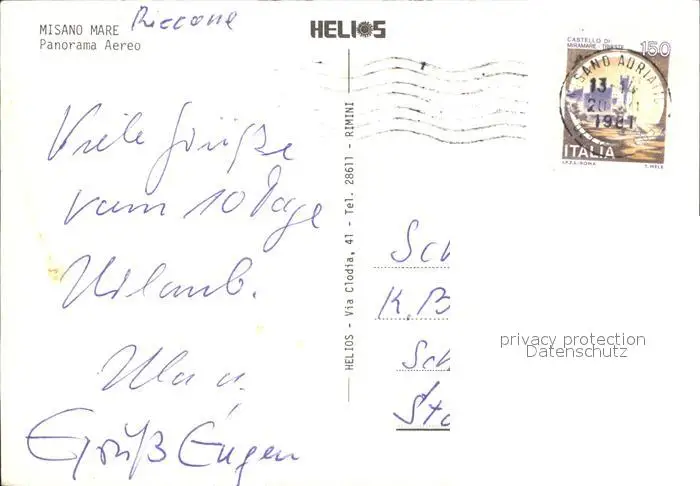 MISANO MARE Riccone
Panorama Aereo
HELIOS
CASTELLO DI
MIRAMARE - TRIESTE
150
SANO ADRIATIC
13 - 14
1981
ITALIA
I.P.Z.S. - ROMA
T. MELE
Viele Grüße
vom 10 Tage
Urlaub.
Ula u.
Grüß Eugen
HELIOS - Via Clodia, 41 - Tel. 28611 - RIMINI
Sch
K.B
Sch
Sta
privacy protection
Datenschutz